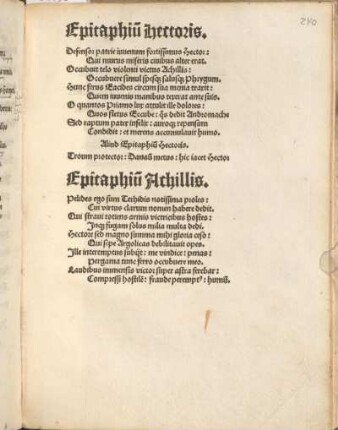 240
Epitaphiū Hectoris.
Defensor patrie iuuenum fortissimus Hector:
Qui murus miseris ciuibus alter erat.
Occubuit telo violenti victus Achillis:
Occubuere simul spesq; salusq; Phrygum.
Hunc ferus Eacides circum sua menia traxit:
Quem iuuenis manibus texerat ante suis.
O quantos Priamo lux attulit ille dolores:
Quos fletus Eccube: quos dedit Andromache
Sed raptum pater infelix: auroq; repensum
Condidit: et merens accumulauit humo.
Aliud Epitaphiū Hectoris.
Troum protector: Danaū metus: hic iacet Hector
Epitaphiū Achillis.
Pelides ego sum Tethidis notissima proles:
Cui virtus clarum nomen habere dedit.
Qui straui totiens armis victricibus hostes:
Inq; fugam solus milia multa dedi.
Hectore sed magno summa mihi gloria ceso:
Qui sepe Argolicas debilitauit opes.
Ille interemptus subijt: me vindice: penas:
Pergama tunc ferro occubuere meo.
Laudibus immensis victor super astra ferebar:
Compressi hostilē: fraude peremptꝰ: humū.